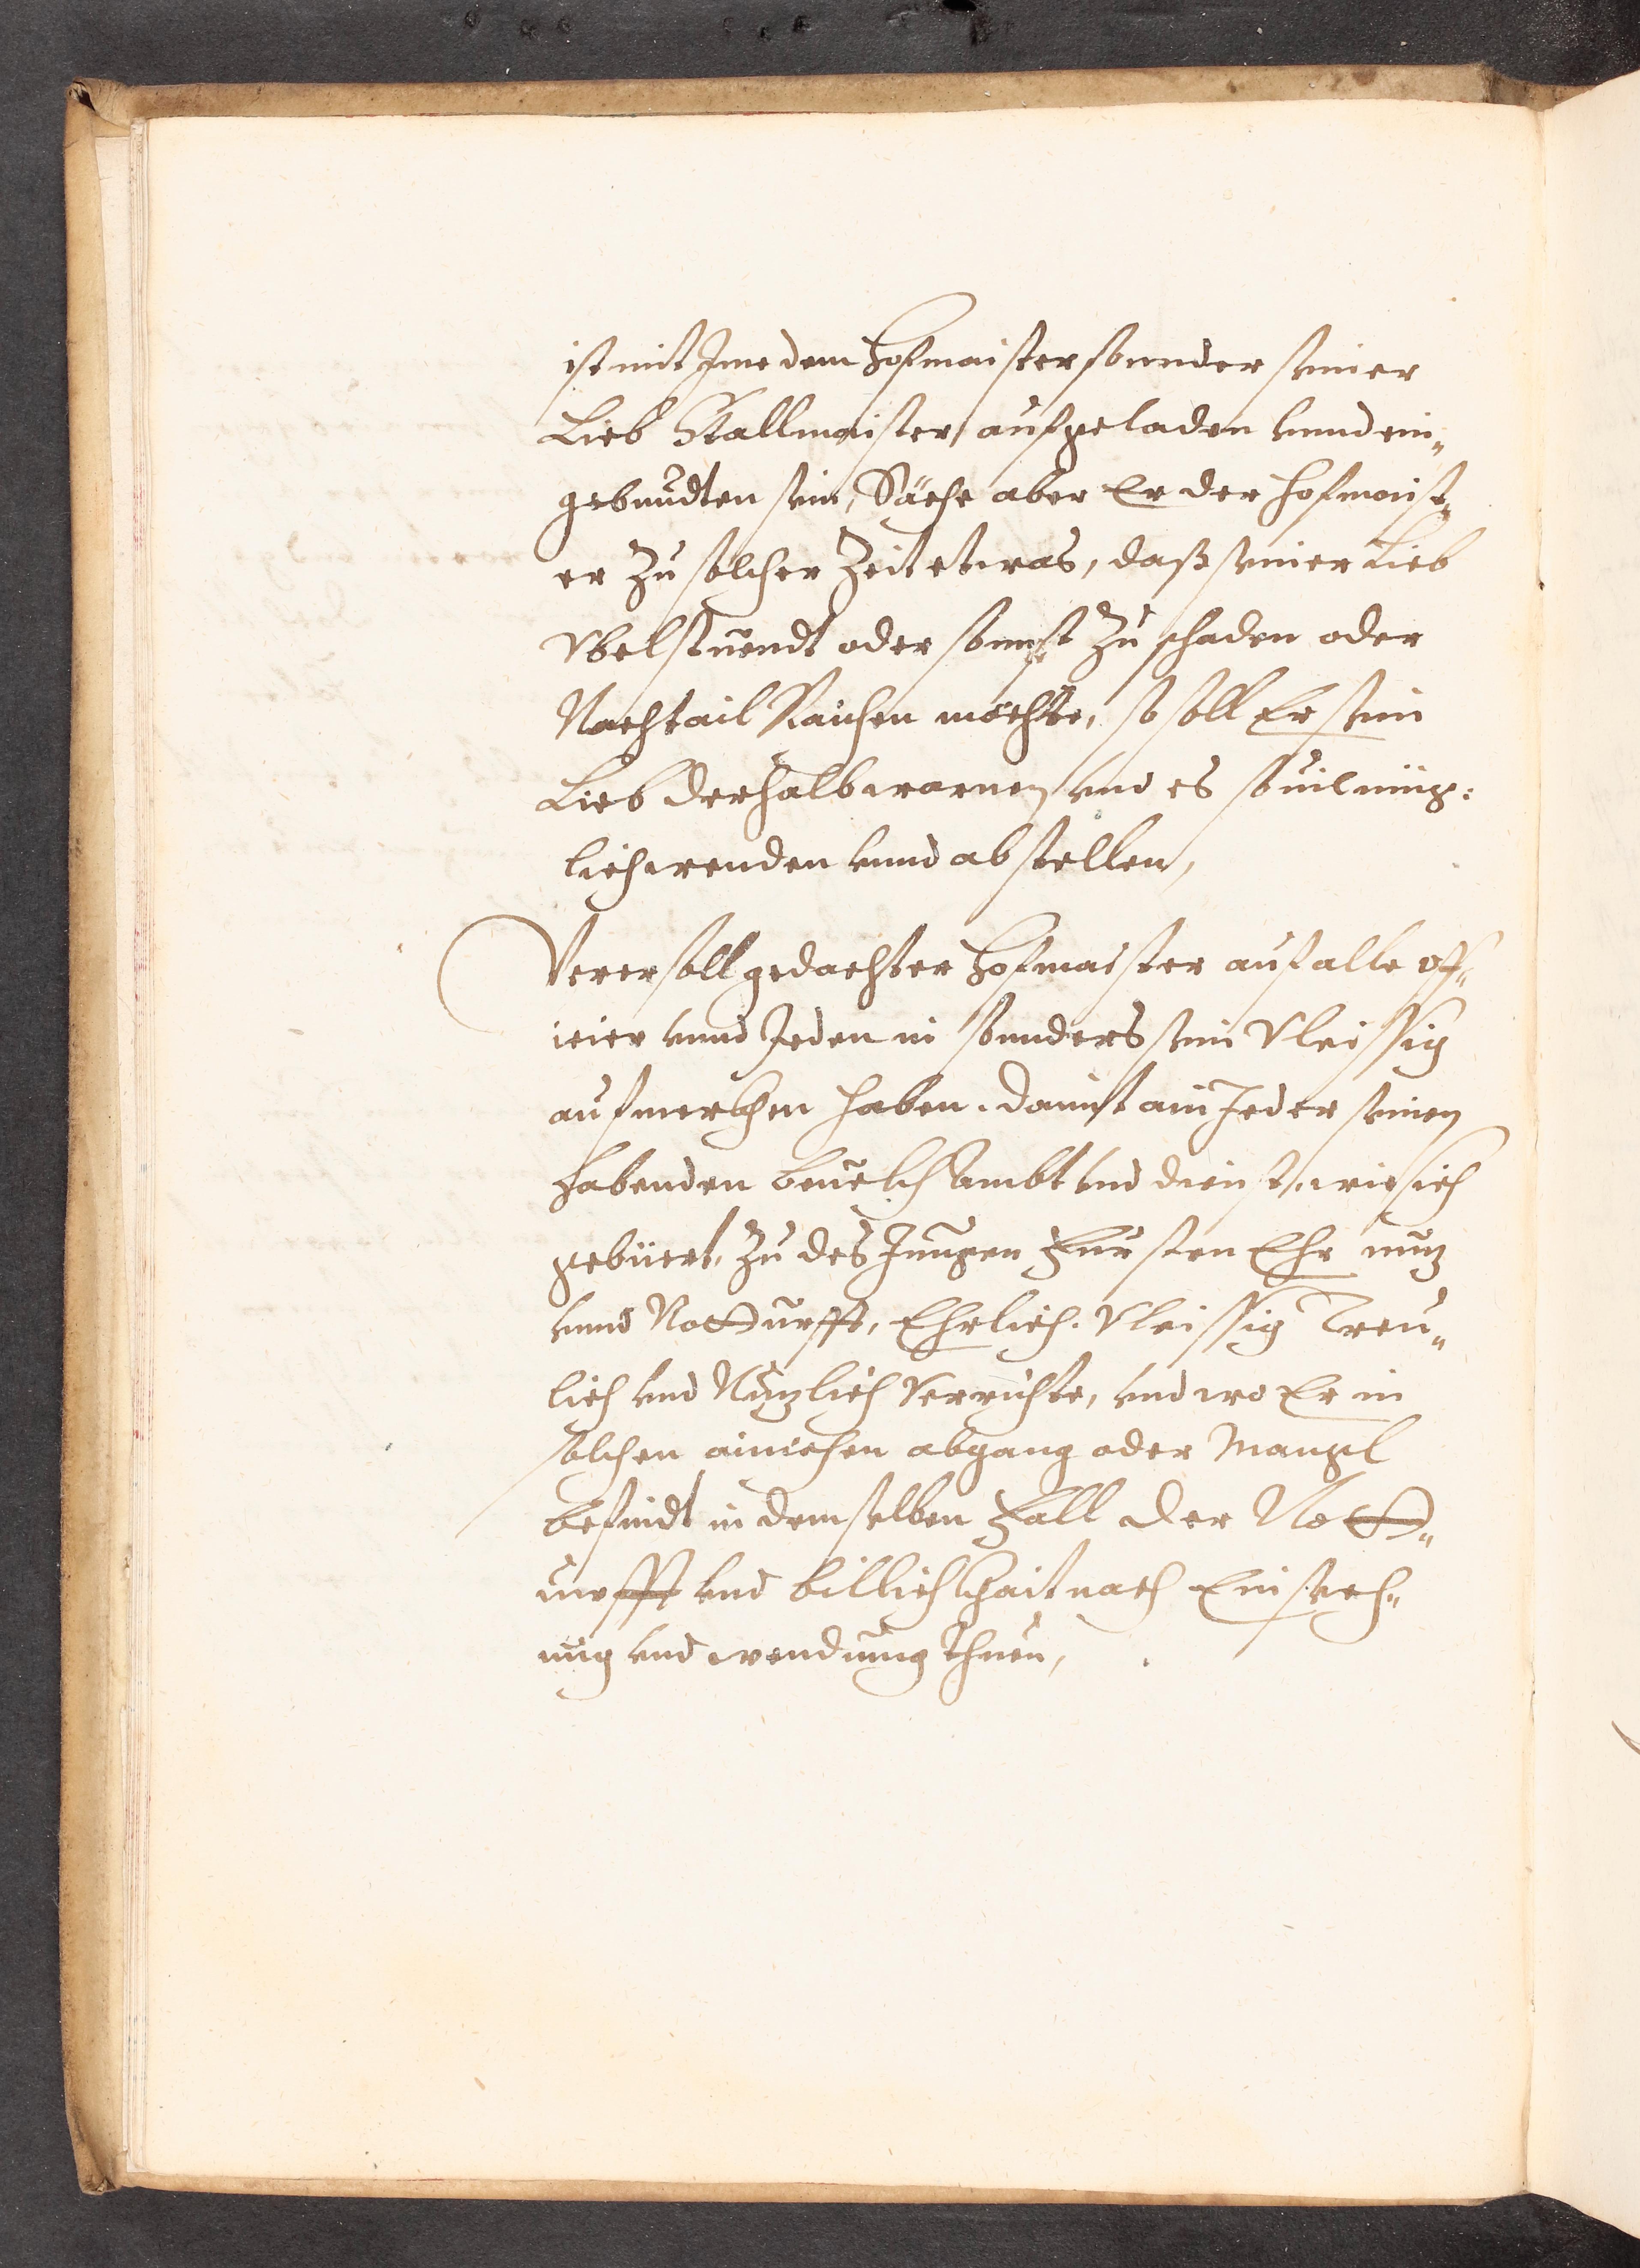 ist mit Ime dem Hofmaister sonnder seiner
Lieb Stallmaister aufgeladen vnnd ein„
gebundten sein, Säche aber Er der Hofmaist„
er Zu solcher Zeit etwas, daß seiner Lieb
Vbelstuendt oder sonnst Zu schaden oder
Nachtail Raichen möchte, so soll Er sein
Lieb derhalb warnen vnd es souil müg:
lich wenden vnnd abstellen,
Verer soll gedachter Hofmaister auf alle off„
icier vnnd Jeden in sonnders sein Vleissig
aufmerkhen haben. damit ain Jeder seinen
habenden beuelch Ambt vnd dienst, wie sich
gebüert, Zu des Jungen Fürsten Ehr nuz
vnnd Notturfft, Ehrlich. Vleissig Treu„
lich vnd Nuzlich Verrichte, vnd wo Er in
solchen ainichen abgang oder Mangl
befindt in demselben Fall der Nott„
urfft vnd billichkhait nach Einsech„
ung vnd wendung thuen,